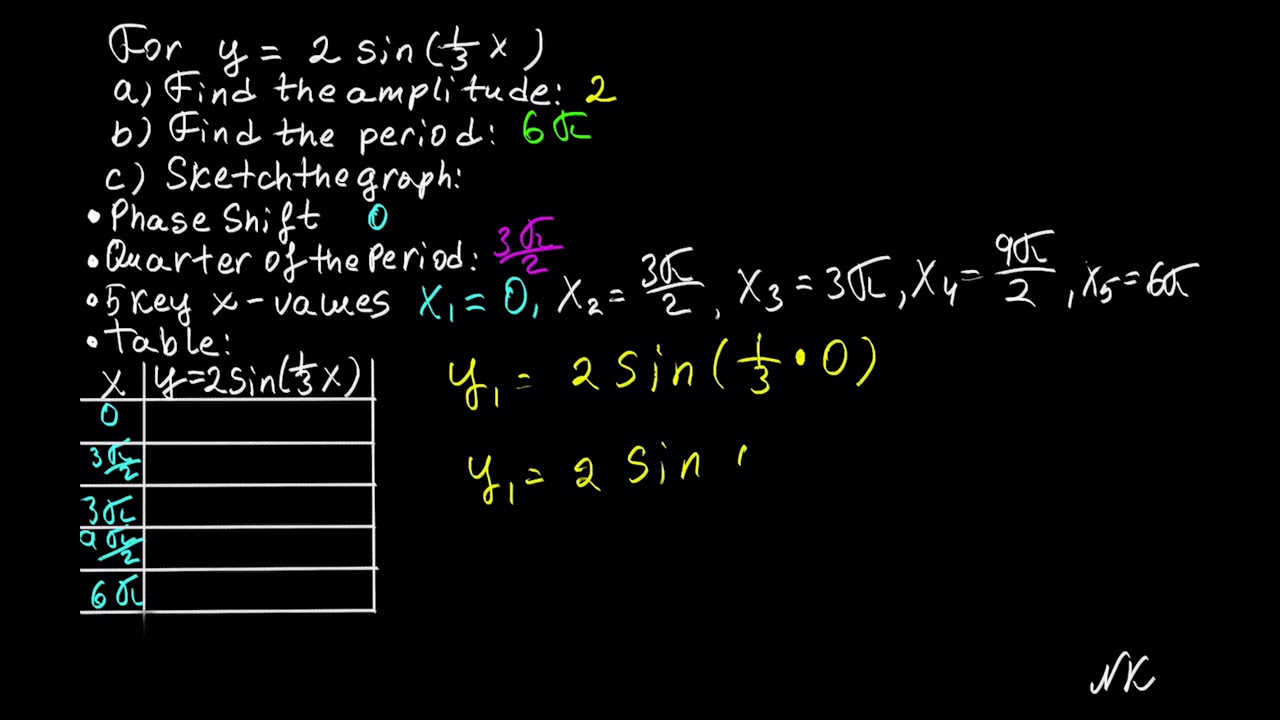 For y = 2 sin(1/3 x)
a) Find the amplitude: 2
b) Find the period: 6π
c) Sketch the graph:
• Phase Shift 0
• Quarter of the Period: 3π/2
• 5 Key x-values x₁ = 0, x₂ = 3π/2, x₃ = 3π, x₄ = 9π/2, x₅ = 6π
• Table:
x y=2sin(1/3 x)
0
3π/2
3π
9π/2
6π
y₁ = 2 Sin(1/3 • 0)
y₁ = 2 Sin
NK